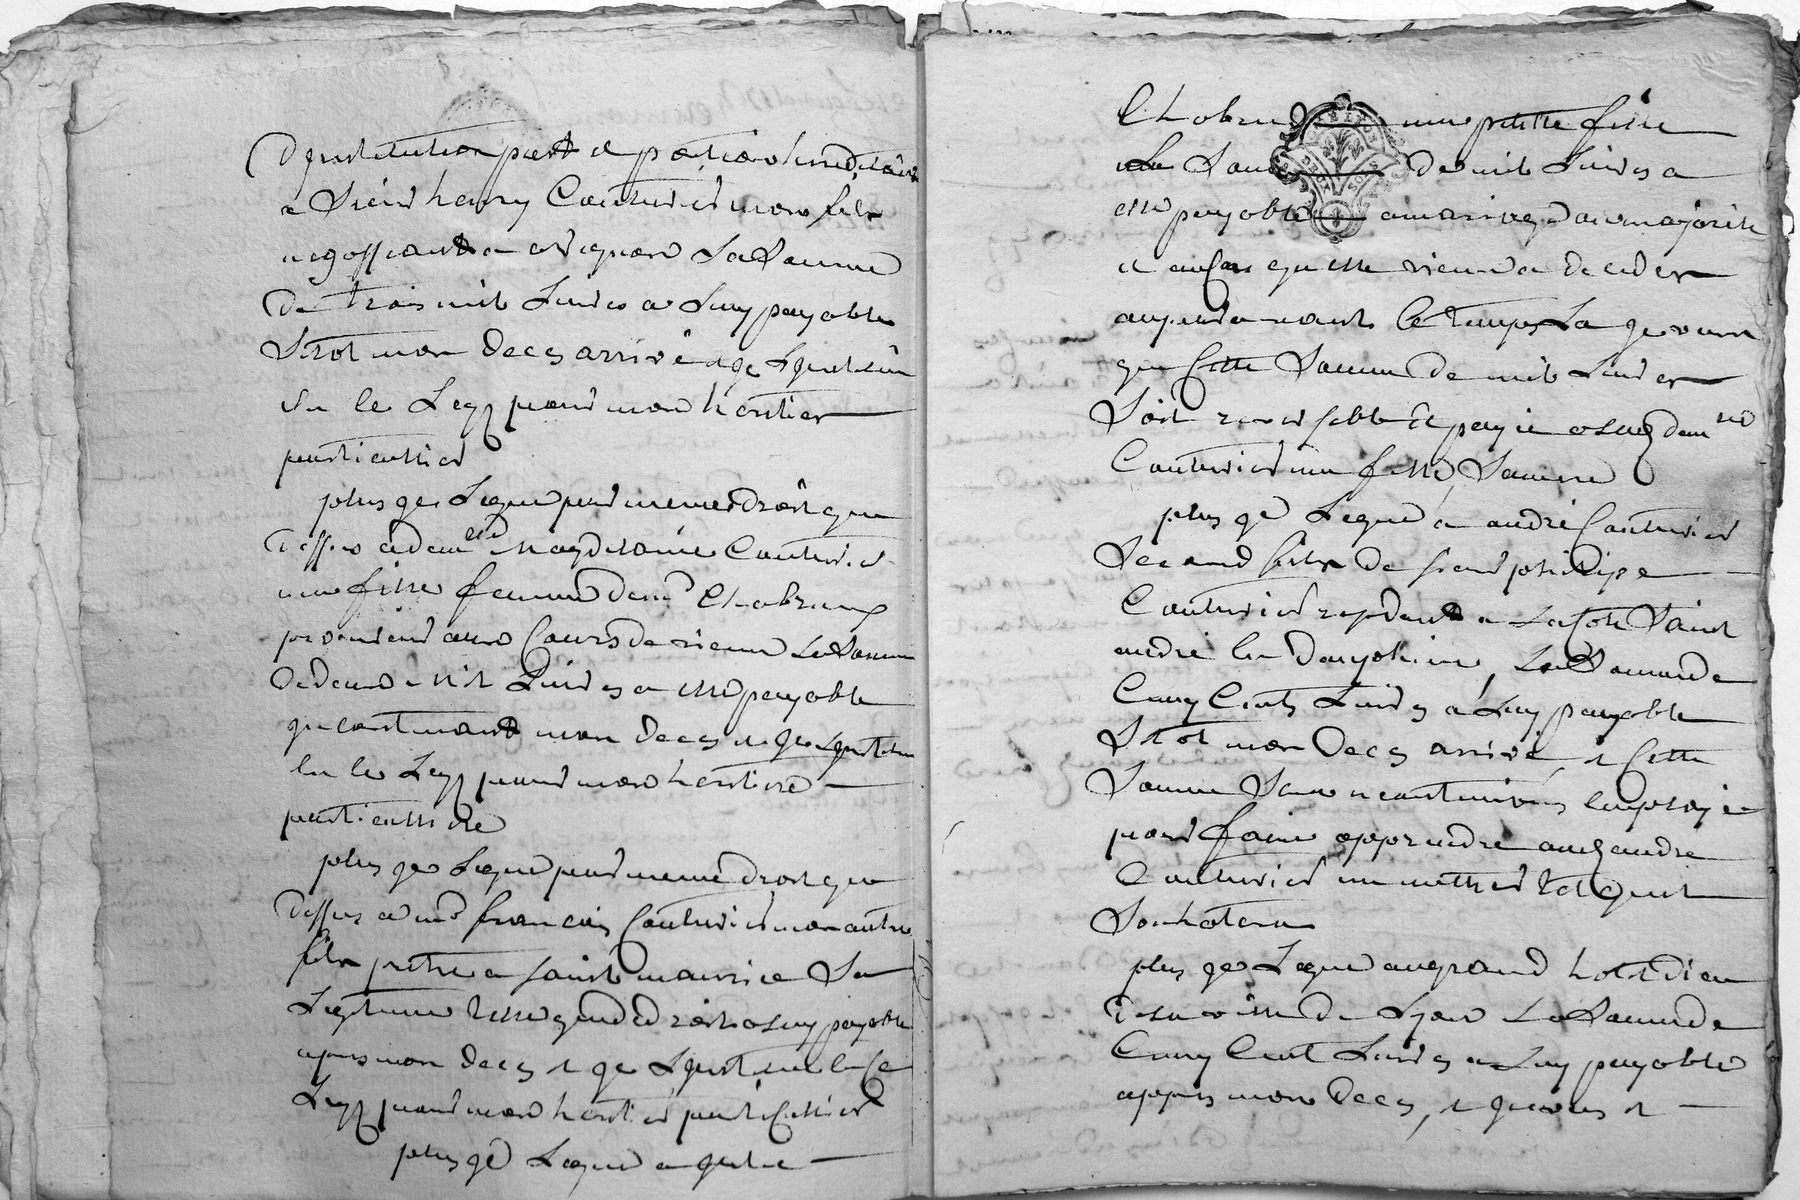 d'institution part et portion hereditaire
a Sieur henry Couturier mon fils
negossiant a avignon La Somme
de trois mil Livres a Luy payable
Sitot mon deces arrivé et je L'institue
en ce Legz pour mon heritier
particullier
plus je Legue par meme droit que
dessus a dem.elle Magdelaine Couturier
ma fille femme de mr Chabreux
procureur aux Cours de vienne La Somme
de deux mil Livres a elle payable
incontinant mon deces et je L'institue
en ce Legz pour mon heritiere
particulliere
plus je Legue par meme droit que
dessus a mr francois Couturier mon autre
fils pretre a saint maurice Sa
Legitime telle que de droit a luy payable
apres mon deces et je L'institue en ce
Legz pour mon heritier particullier
plus je Legue a
Chabreux ma petitte fille
La Somme de mil Livres a
elle payable a sa majorité
et au cas qu'elle vienne a deceder
auparavant ce temps La je veux
que cette Somme de mil Livres
Soit reversible et payée a lad dem.lle
Couturier ma fille, Sa mere
plus je Legue a andré Couturier
Second fils de sieur philippe
Couturier resident a La Cote Saint
andré en dauphine, La Somme de
Cinq Cents Livres a Luy payable
Sitot mon deces arrivé, et cette
Somme Sera neantmoins employée
pour faire apprendre aud andré
Couturier un mettier tel qu'il
Souhaitera
plus je Legue au grand hotel dieu
de la ville de Lyon La Somme de
Cinq Cent Livres a Luy payable
apres mon deces, et je veux et